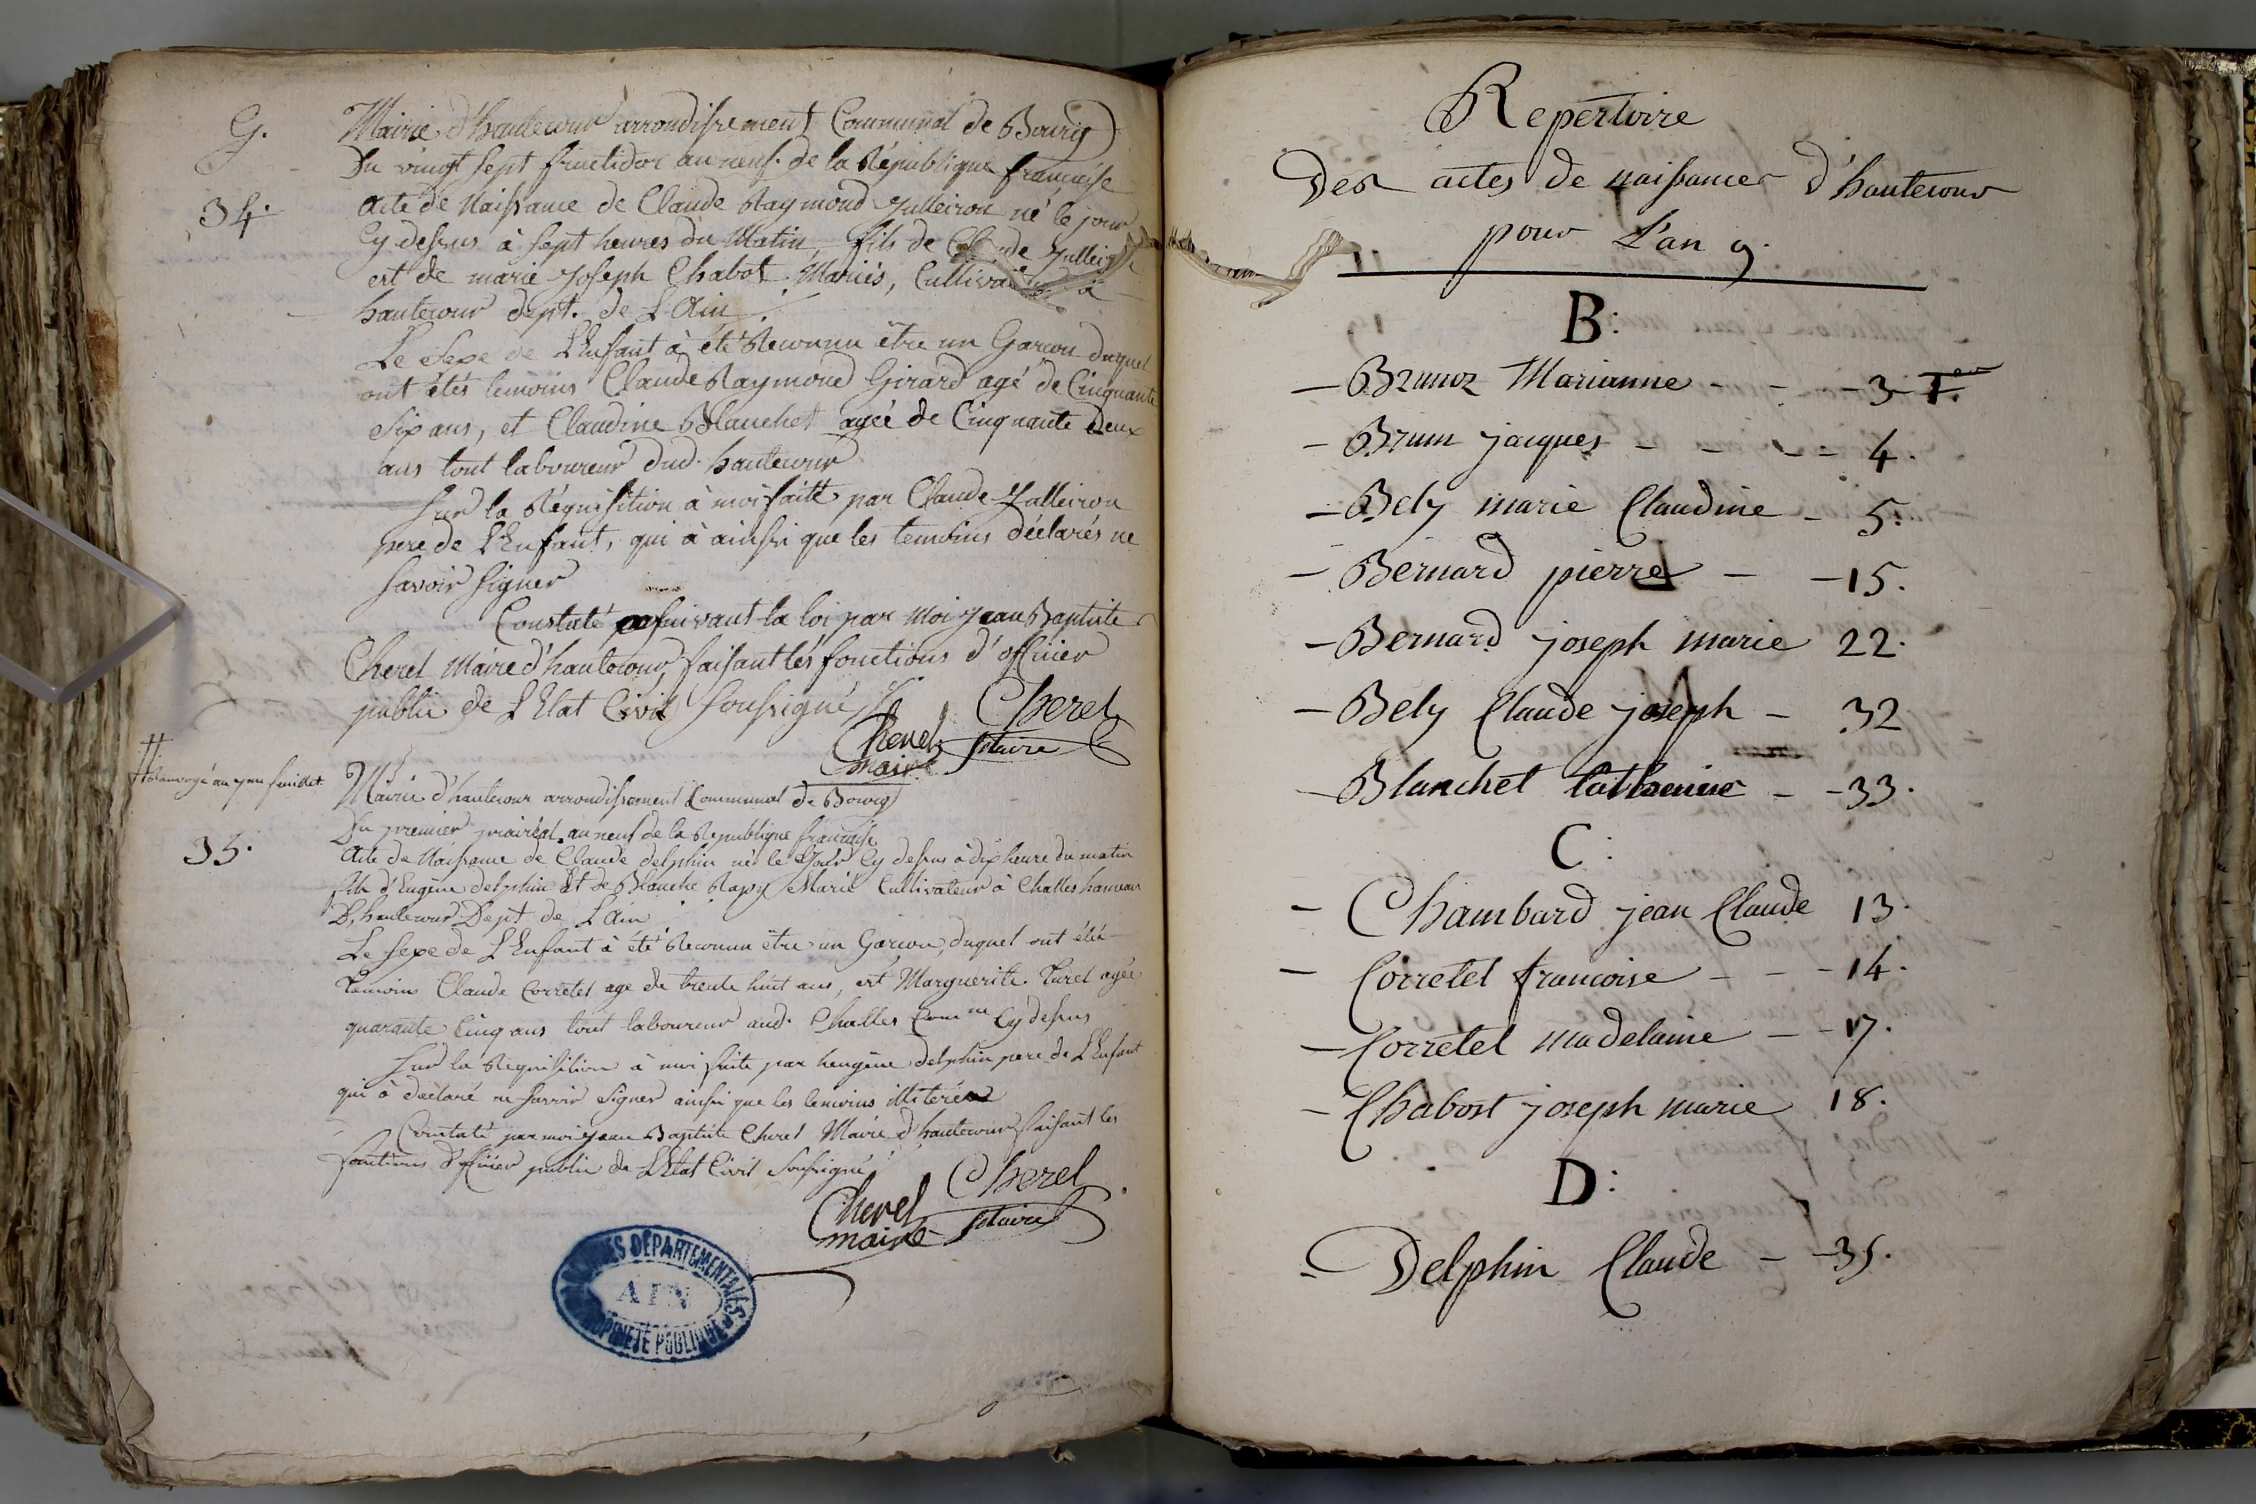 G.
34.
Mairie d'hautecour arrondissement Communal de Bourg
Du vingt sept fructidor an neuf de la République française
Acte de Naissance de Claude Raymond Julleiron né le jour
Cy dessus à sept heures du Matin, fils de Claude Julleiron
est de marie Joseph Chabot Mariés, Cultivateurs à
hautecour dept. de L'Ain
Le Sexe de L'Enfant à été Reconnu être un Garçon duquel
ont étés temoins Claude Raymond Girard agé de Cinquante
Six ans, et Claudine Blanchet agée de Cinquante deux
ans tout laboureur dud. hautecour
Sur la Réquisition à moi faitte par Claude Julleiron
pere de L'Enfant, qui à ainssi que les temoins déclarés ne
savoir signer
Constaté suivant la loi par Moi Jean Baptiste
Cherel Maire d'hautecour, faisant les fonctions d'officier
public de L'Etat Civil Soussigné
Cherel
maire
Cherel
Maire
au feuillet
35.
Mairie d'hautecour arrondissement Communal de Bourg
Du premier prairéal an neuf de la Republique française
Acte de Naissance de Claude delphin né le Jour Cy dessus à dix heure du matin
fils d'Eugène delphin Et de Blanche Rapy Marié Cultivateur à Challes hameau
D'hautecour Dept de L'Ain
Le sexe de L'Enfant à été Reconnu être un Garçon, duquel ont étée
temoins Claude Corretel age de trente huit ans, est Marguerite Turel agée
quarante Cinq ans tout laboureur aud. Challes Com.ne Cy dessus
Sur la Requisition à moi faite par heugène delphin pere de L'Enfant
qui à déclaré ne savoir signer ainssi que les temoins illitérés
Contaté par moi Jean Baptiste Cherel Maire d'hautecour faisant les
fonctions d'officier public de L'Etat Civil Soussigné
Cherel
maire
Cherel
Maire
ARCHIVES DÉPARTEMENTALES
AIN
PROPRIÉTÉ PUBLIQUE
Repertoire
Des actes de naissances d'hautecour
pour L'an 9.
B:
– Brunoz Marianne - - - 3
– Brun jacques - - - - 4.
– Bely marie Claudine - 5.
– Bernard pierre - - 15.
– Bernard joseph marie 22.
– Bely Claude joseph - 32
– Blanchet Catherine - - 33.
C:
– Chambard jean Claude 13.
– Corretel francoise - - - 14.
– Corretel madelaine - - 17.
– Chabost joseph marie 18.
D:
– Delphin Claude - - 35.